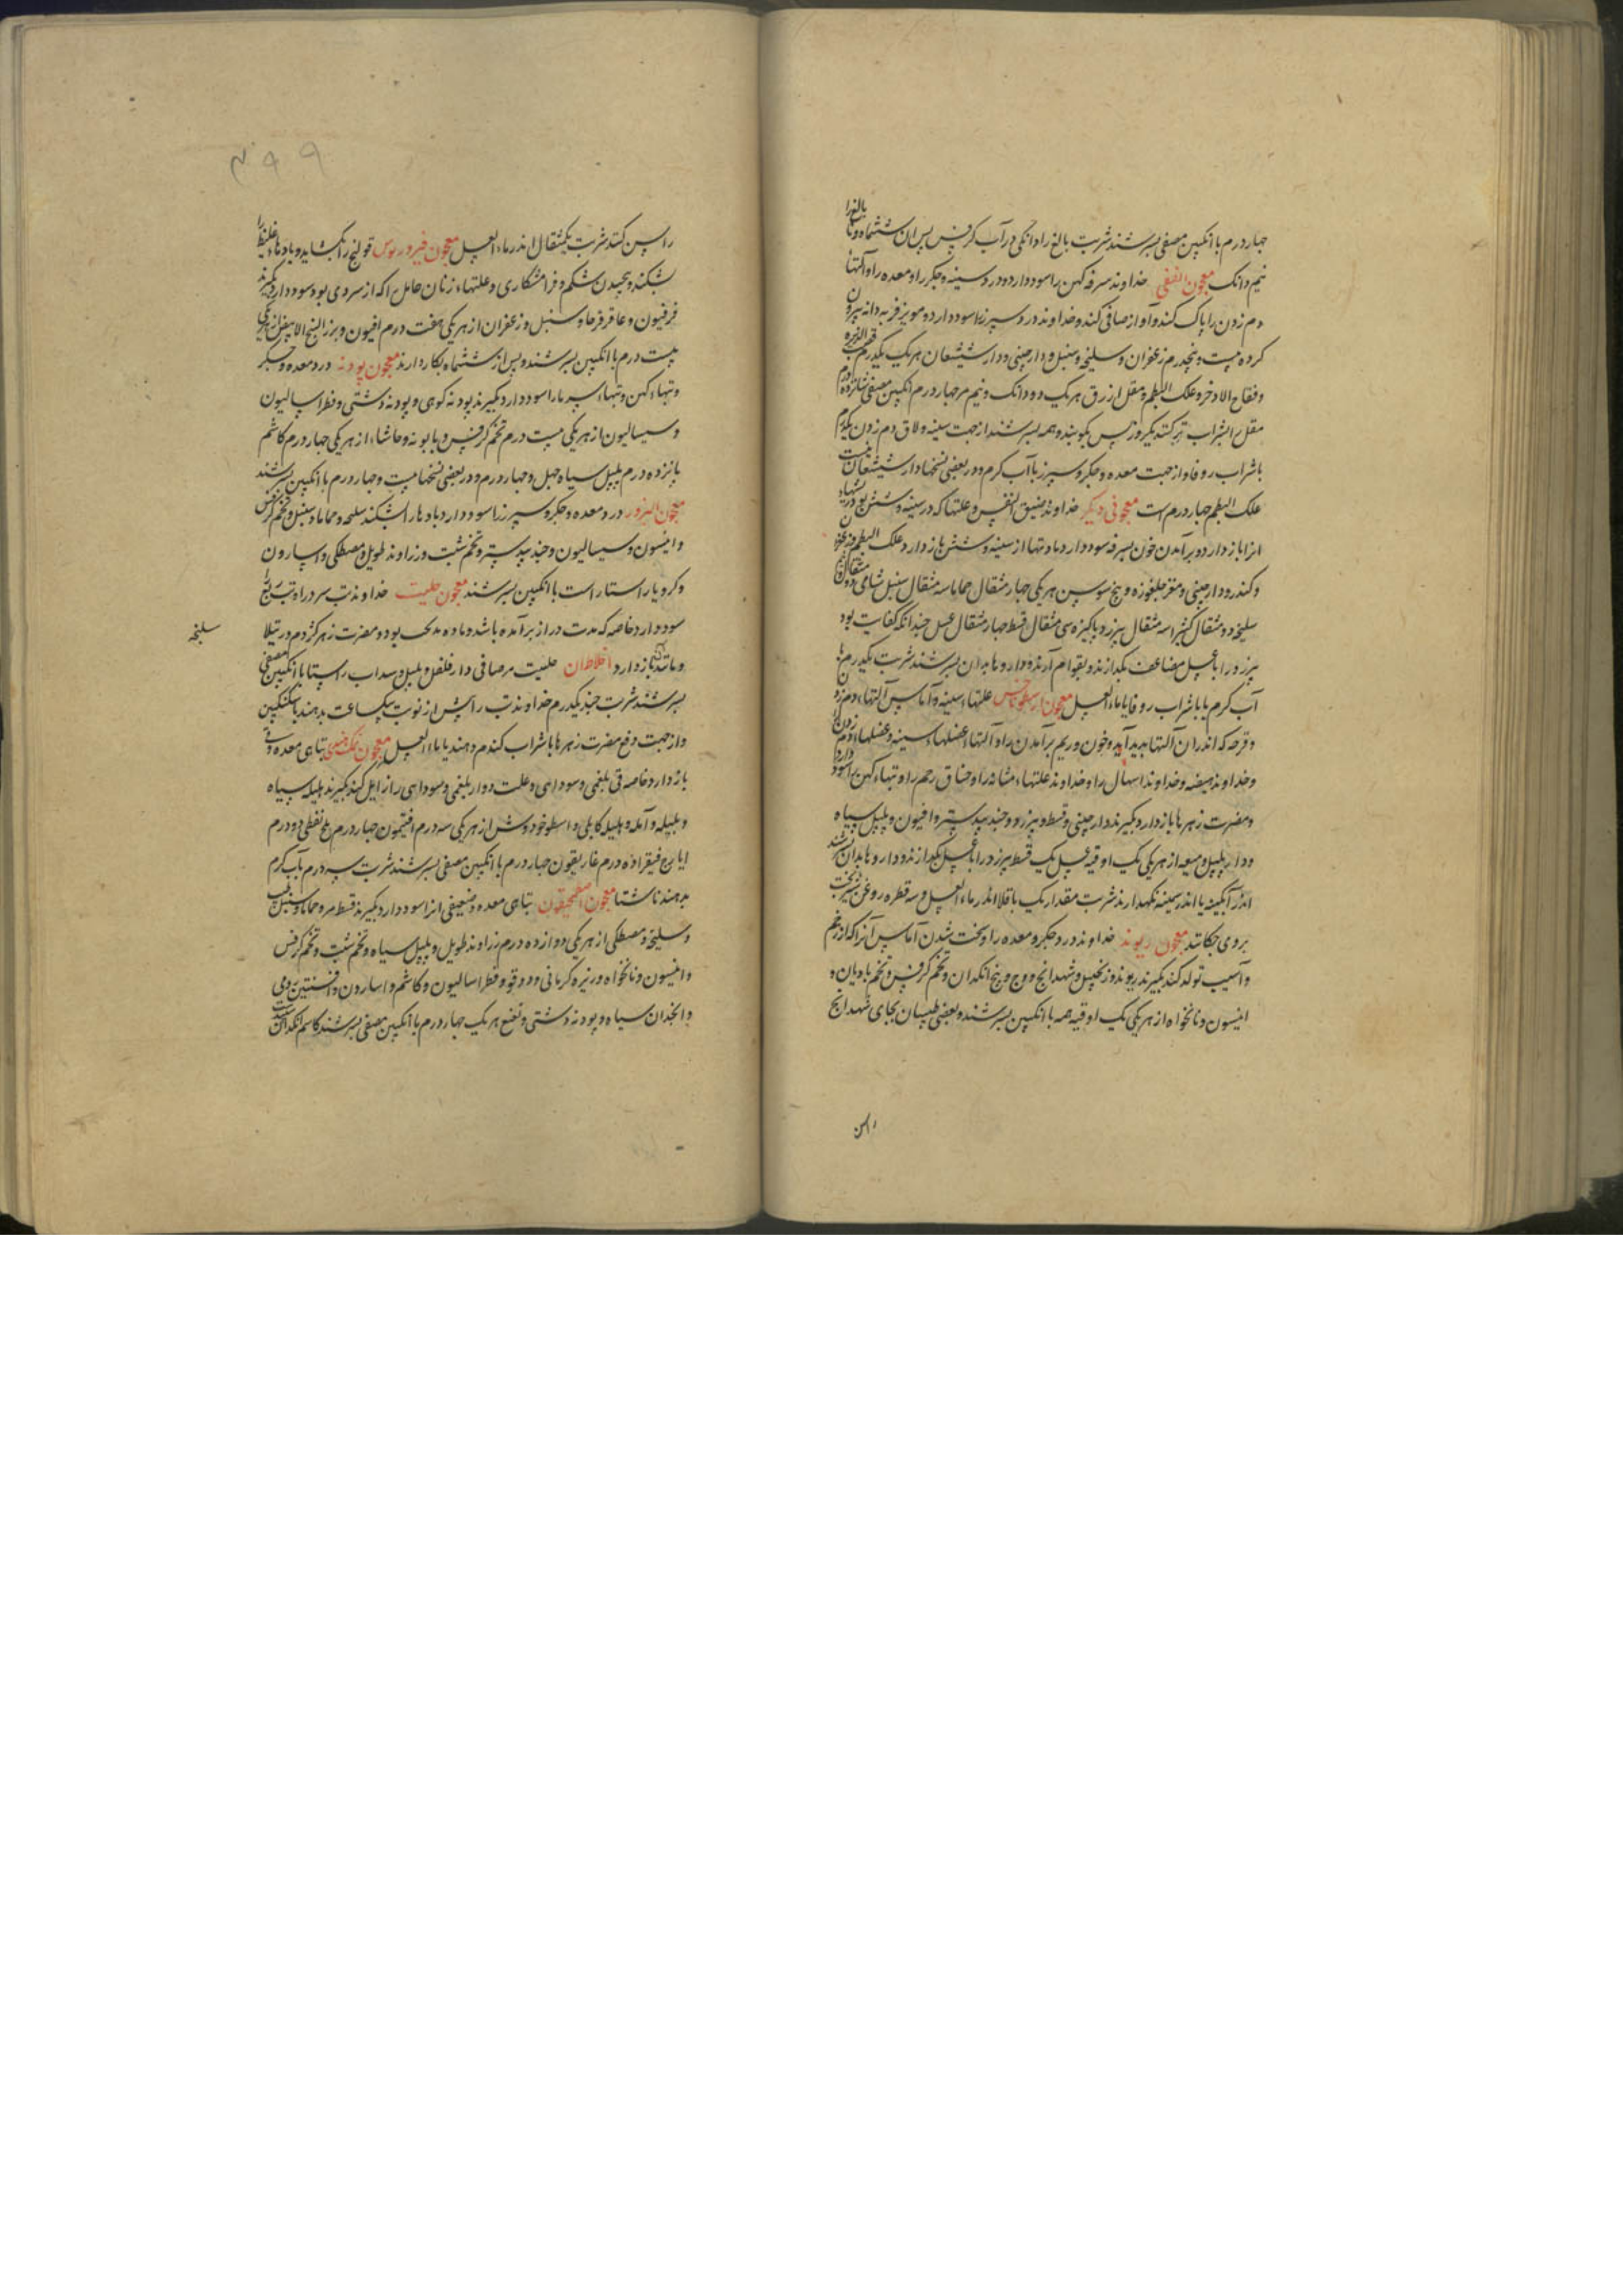 چهار درم با انگبین مصفی بسرشند شربت بالغ را دانکی در آب کرفس پس از ششماه و نابالغ را
نیم دانک معجون القفی خداوند سرفه کهن را سود دارد و درد سینه و جکر را و معده را و آلتهاء
دم زدن را پاک کند و آواز صافی کند و خداوند درد سپرز را سود دارد مویز فربه دانه بیرون
کرده بیست و پنجدرم زعفران و سلیخه و سنبل و دارچینی و دارشیشعان هر یک یکدرم قصب الذریره
و فقاح الاذخر و علک البطم و مقل ازرق هر یک دو دانک و نیم مر چهار درم انکبین مصفی شانزده درم
مقل بشراب تر کنند یکروز پس بکوبند و همه بسرشند از جهت سینه و لاق دم زدن یکدرم
باشراب زوفا و از جهت معده و جکر و سپرز با آب کرم و در بعضی نسخها دارشیشعان بیست
علک البطم چهار درم است معجونی دیکر خداوند ضیق النفس و علتها که در سینه و شش بود و ریشهاء
انرا باز دارد و برآمدن خون بسرفه سود دارد و مادتها از سینه و شش باز دارد علک البطم
و کندر و دارچینی و مغز جلغوزه و بیخ سوسن هر یکی چهار مثقال حماما سه مثقال سنبل شامی دو مثقال
سلیخه دو مثقال کثیرا سه مثقال بیرزد پاکیزه سی مثقال قسط چهار مثقال عسل چندانکه کفایت بود
بیرزد را با عسل مضاعف بکدازند و بقوام آرند و داروها بدان بسرشند شربت یکدرم با
آب کرم یا با شراب زوفا یا ماء العسل معجون ارسطوماخس علتهاء سینه و آماس آلتهاء دم زدن
و قرحه که اندران آلتها پدید آید و خون و ریم برآمدن را و آلتهاء عضلهاء سینه و عضلهاء دم زدن
و خداوند هیضه و خداوند اسهال را و خداوند علتهاء مثانه را و خناق رحم را و تبهاء کهن را سود دارد
و مضرت زهرها باز دارد بکیرند دارچینی و قسط و بیرزد و جندبیدستر و افیون و پلپل سیاه
و دارپلپل و میعه از هر یکی یک اوقیه عسل یک قسط بیرزد را با عسل بکدازند و داروها بدان بسرشند
اندر آبکینه یا اندر سیمینه نکهدارند شربت مقدار یک باقلا اندر ماء العسل و سه قطره روغن شیرپخت
بروی چکانند معجون ریوند خداوند درد جکر و معده را و سخت شدن آماس آنرا که از زخم
و آسیب تولد کند بکیرند ریوند و زنجبیل و شهدانج و وج و بیخ انکدان و تخم کرفس و تخم بادیان و
انیسون و نانخواه از هر یکی یک اوقیه همه با انکبین بسرشند و بعضی طبیبان بجای شهدانج
راسن
۴۹۹
راسن کنند شربت یکمثقال اندر ماء العسل معجون فیروزنوس قولنج را بکشاید و بادهاء غلیظ را
بشکند و پیچیدن شکم و فرامشکاری و علتهاء زنان حامل را که از سردی بود سود دارد بکیرند
فرفیون و عاقرقرحا و سنبل و زعفران از هر یکی هفت درم افیون و بزر البنج الابیض از هر یکی
بیست درم با انکبین بسرشند و پس از ششماه بکار دارند معجون پودنه درد معده و جکر
و تبهاء کهن و تبهاء سرما را سود دارد بکیرند پودنه کوهی و پودنه دشتی و فطراسالیون
و سیسالیون از هر یکی بیست درم تخم کرفس و بابونه و حاشاء از هر یکی چهار درم کاشم
پانزده درم پلپل سیاه چهل و چهار درم و در بعضی نسخها بیست و چهار درم با انکبین بسرشند
معجون البزور درد معده و جکر و سپرز را سود دارد و بادها را بشکند سلیخه و حماما و سنبل و تخم کرفس
و انیسون و سیسالیون و جندبیدستر و تخم شبت و زراوند طویل و مصطکی و اسارون
و کرویا راستا راست با انکبین بسرشند معجون حلتیت خداوند تب سرد را و تب ربع را
سود دارد خاصه که مدت دراز برآمده باشد و ماده پخته بود و مضرت زهر کژدم و رتیلا
و مانند آن باز دارد اخلاط آن حلتیت مر صافی دار فلفل و پلپل و سداب راستا با انکبین مصفی
بسرشند شربت چند یکدرم خداوند تب را پیش از نوبت بیکساعت بدهند با سکنکبین
و از جهت دفع مضرت زهرها با شراب کندم دهند یا با ماء العسل معجون تباهی معده و قی
باز دارد خاصه قی بلغمی و سودای و علت دوار بلغمی و سودای را زایل کند بکیرند هلیله سیاه
و بلیله و آمله و هلیله کابلی و اسطوخودوس از هر یکی سه درم افتیمون چهار درم ملح نفطی دو درم
ایارج فیقرا ده درم غاریقون چهار درم با انکبین مصفی بسرشند شربت سه درم بآب کرم
بدهند ناشتا معجون اصطمخیقون تباهی معده و ضعیفی انرا سود دارد بکیرند قسط مر و حماما و سنبل
و سلیخه و مصطکی از هر یکی دوازده درم زراوند طویل و پلپل سیاه و تخم شبت و تخم کرفس
و انیسون و نانخواه و زیره کرمانی و دوقو و فطراسالیون و کاشم و اسارون و افسنتین رومی
و انجدان سیاه و پودنه دشتی و نعنع هر یک چهار درم با انکبین مصفی بسرشند کاسم انکدان است
سلیخه